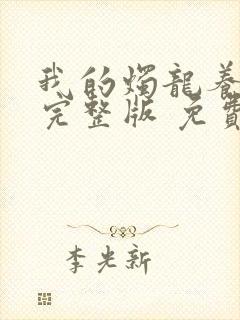 我的燭龍養
完整版 免費
李光新